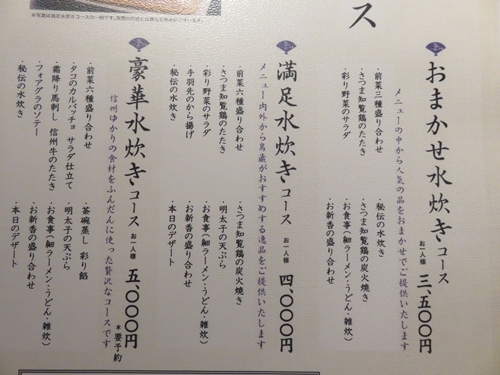 ス
おまかせ水炊きコース お一人様 三、五〇〇円
メニューの中から人気の品をおまかせでご提供いたします
・前菜三種盛り合わせ
・さつま知覧鶏のたたき
・彩り野菜のサラダ
・秘伝の水炊き
・さつま知覧鶏の炭火焼き
・お食事(細ラーメン・うどん・雑炊)
・お新香の盛り合わせ
満足水炊きコース お一人様 四、〇〇〇円
メニュー内外から鳥蔵がおすすめする逸品をご提供いたします
・前菜六種盛り合わせ
・さつま知覧鶏のたたき
・彩り野菜のサラダ
・手羽先のから揚げ
・秘伝の水炊き
・さつま知覧鶏の炭火焼き
・明太子の天ぷら
・お食事(細ラーメン・うどん・雑炊)
・お新香の盛り合わせ
・本日のデザート
豪華水炊きコース お一人様 五、〇〇〇円
*要予約
信州ゆかりの食材をふんだんに使った贅沢なコースです
・前菜六種盛り合わせ
・タコのカルパッチョ サラダ仕立て
・霜降り馬刺し 信州牛のたたき
・フォアグラのソテー
・秘伝の水炊き
・茶碗蒸し 彩り餡
・明太子の天ぷら
・お食事(細ラーメン・うどん・雑炊)
・お新香の盛り合わせ
・本日のデザート